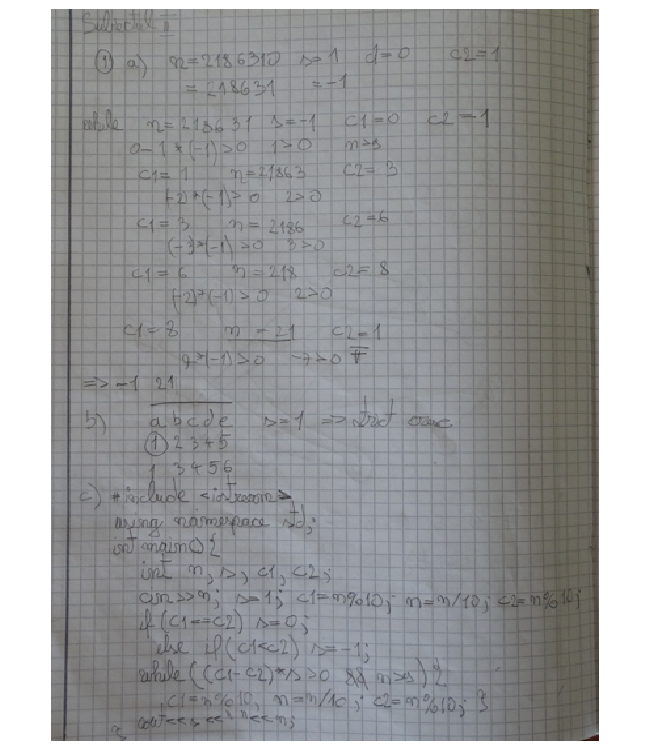 Subiectul II
① a) n=2186310 s=1 d=0 c2=1
= 218631 =-1
while n=218631 s=-1 c1=0 c2=1
0-1*(-1)>0 1>0 n>9
c1=1 n=21863 c2=3
(-2)*(-1)>0 2>0
c1=3 n=2186 c2=6
(-3)*(-1)>0 3>0
c1=6 n=218 c2=8
(-2)*(-1)>0 2>0
c1=8 n=21 c2=1
7*(-1)>0 -7>0 F
=> -1 21
b) abcde s=1 => strict
① 2345
1 3456
c) #include <iostream>
using namespace std;
int main() {
int n, s, c1, c2;
cin>>n; s=1; c1=n%10; n=n/10; c2=n%10;
if (c1==c2) s=0;
else if (c1<c2) s=-1;
while ((c1-c2)*s>0 && n>9) {
c1=n%10; n=n/10; c2=n%10; }